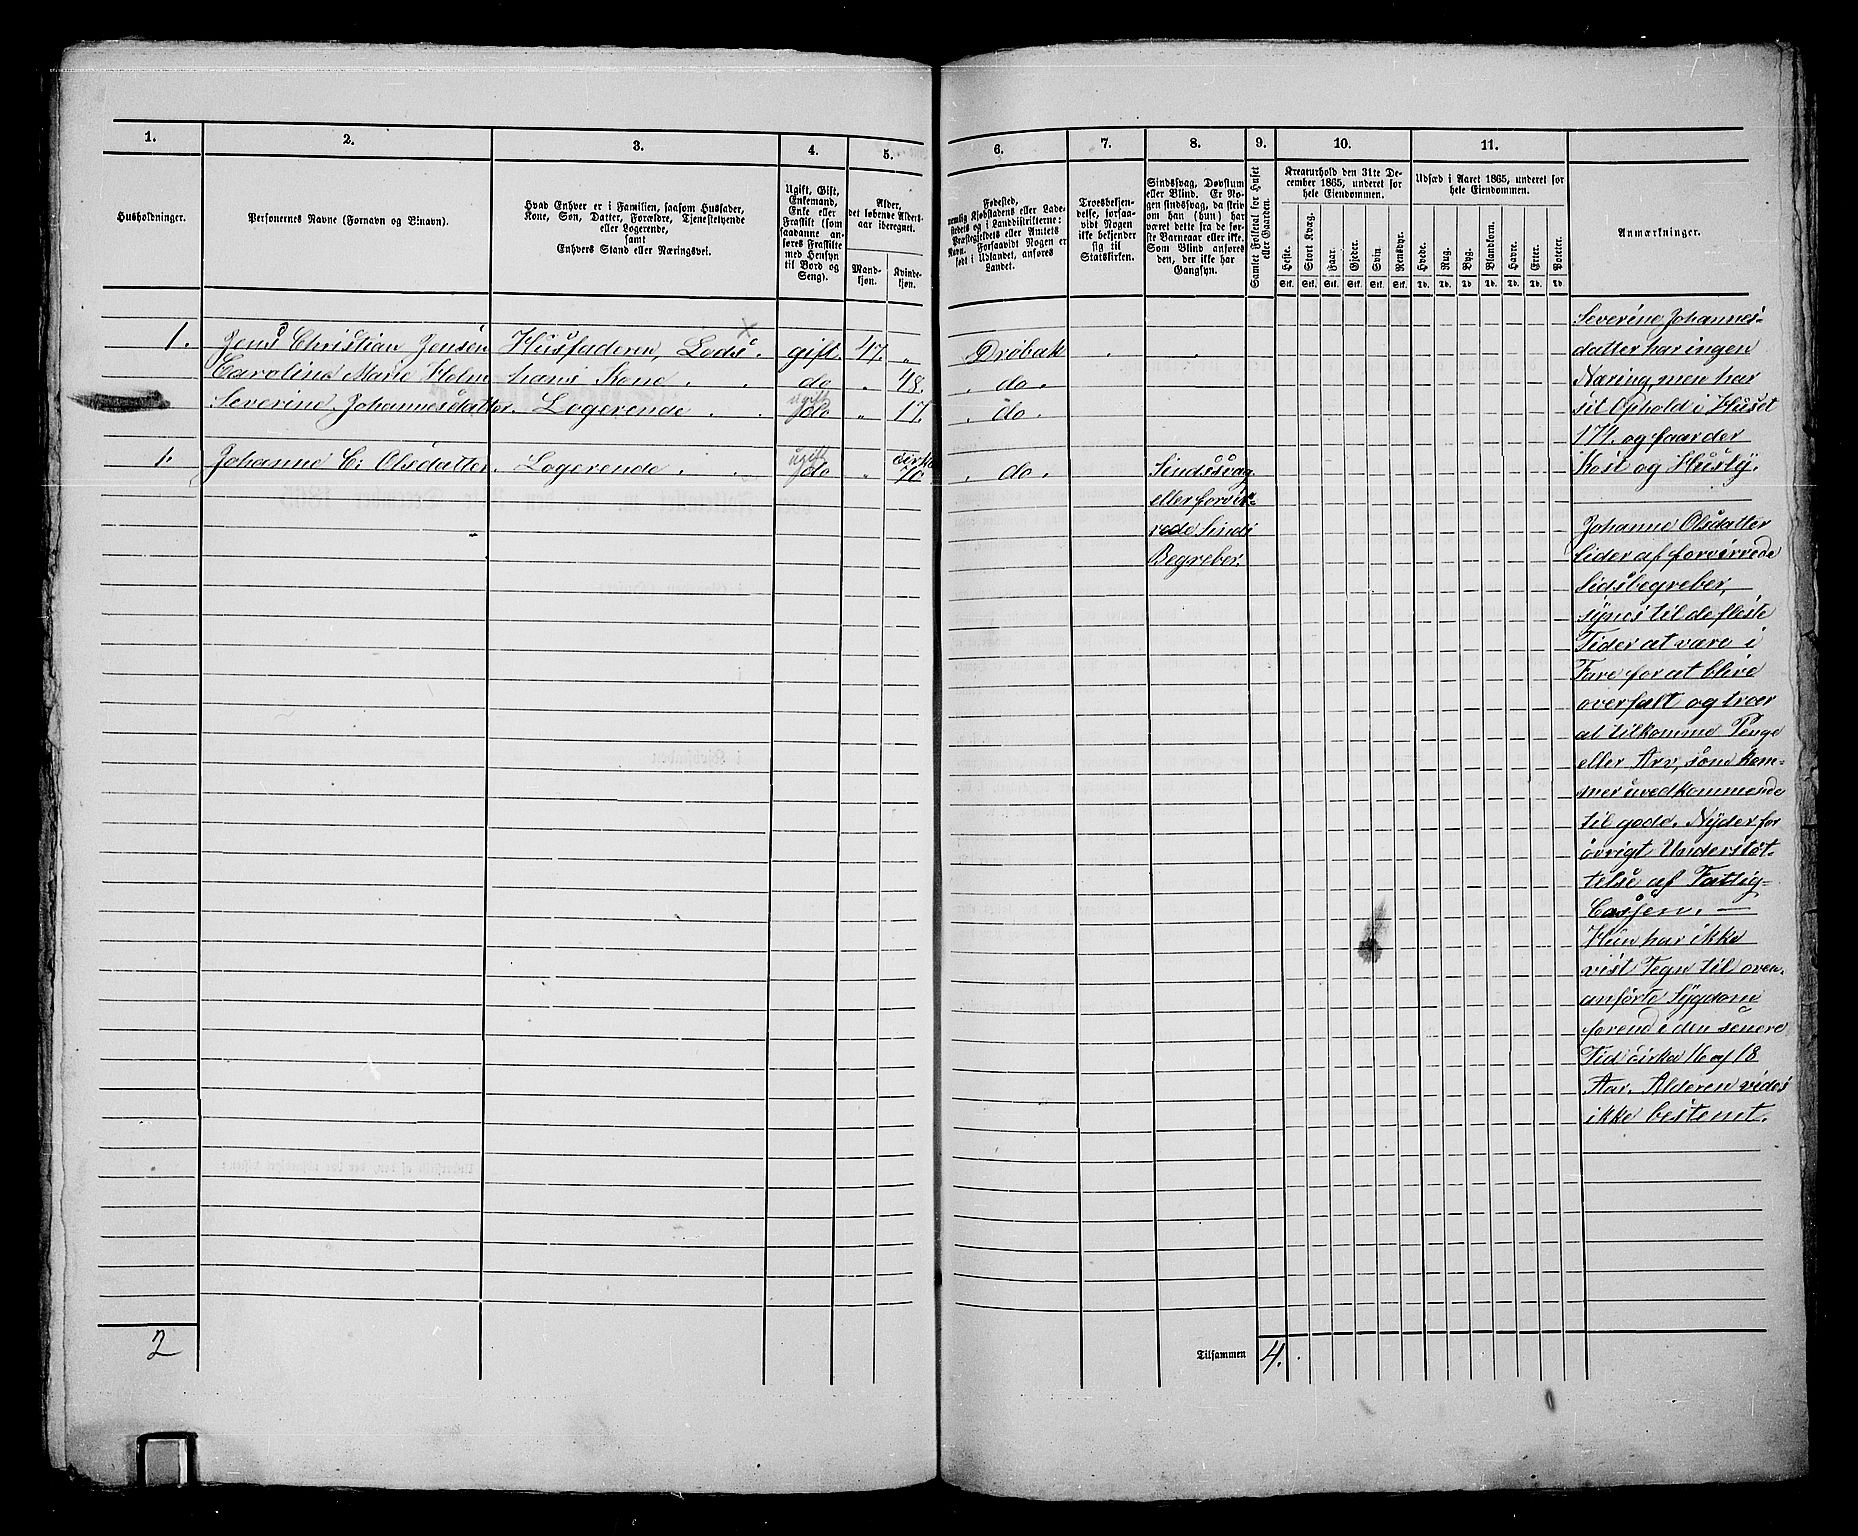 1.
2.
3.
4.
5.
6.
7.
8.
9.
10.
11.
Husholdninger.
Personernes Navne (Fornavn og Binavn).
Hvad Enhver er i Familien, saasom Husfader,
Kone, Søn, Datter, Forældre, Tjenestetyende
eller Logerende,
samt
Enhvers Stand eller Næringsvei.
Ugift, Gift,
Enkemand,
Enke eller
Fraskilt (som
saadanne an-
føres Fraskilte
med Hensyn
til Bord og
Seng).
Alder,
det løbende Alders-
aar iberegnet.
Mand-
kjøn.
Kvinde-
kjøn.
Fødested,
nemlig Kjøbstadens eller Lade-
stedets og i Landdistrikterne:
Præstegjeldets eller Amtets
Navn. Forsaavidt Nogen er
født i Udlandet, anføres
Landet.
Troesbekjen-
delse, forsaa-
vidt Nogen
ikke bekjender
sig til
Statskirken.
Sindssvag, Døvstum
eller Blind. Er No-
gen sindssvag, da skriv
om han (hun) har
været dette fra de før-
ste Barneaar eller ikke.
Som Blind anføres
den, der ikke har
Gangsyn.
Samlet Folketal for Huset
eller Gaarden.
Kreaturhold den 31te De-
cember 1865, underet for
hele Eiendommen.
Heste. Stort Kvæg. Faar. Gjeder. Svin. Rensdyr.
Stk. Stk. Stk. Stk. Stk. Stk.
Udsæd i Aaret 1865, underet for
hele Eiendommen.
Hvede. Rug. Byg. Blandkorn. Havre. Erter. Poteter.
Td. Td. Td. Td. Td. Td. Td.
Anmærkninger.
1. Jens Christian Jensen Husfaderen, Lods. gift. 47. „ Drøbak
Caroline Marie Holm hans Kone. do „ 48. do.
ugift
Severine Johannesdatter. Logerende do „ 17. do.
ugift cirka
1. Johanne C: Olsdatter. Logerende do „ 70. do. Sindssvag
eller forvir-
rede Sinds
Begreber.
Severine Johannes-
datter har ingen
Næring, men har
sit Ophold i Huset
174. og faar der
Kost og Husly.
Johanne Olsdatter
lider af forvirrede
Sidsbegreber,
synes til de fleste
Tider at være i
Fare for at blive
overfalt og troer
at tilkomme Penge
eller Arv, som kom-
mer uvedkommende
til gode. Nyder for
øvrigt Understøt-
telse af Fattig-
Cassen. —
Hun har ikke
vist Tegn til oven-
anførte Sygdom
forend i den senere
Tid cirka 16 af 18
Aar. Alderen vides
ikke bestemt.
2
Tilsammen 4.